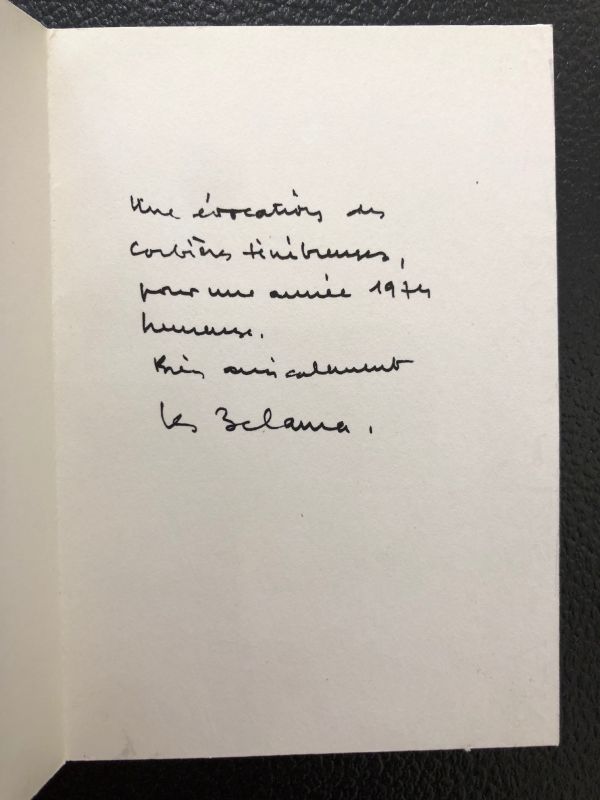 Une évocation des
Corbières ténébreuses,
pour une année 1974
heureuse.
Bien amicalement
les